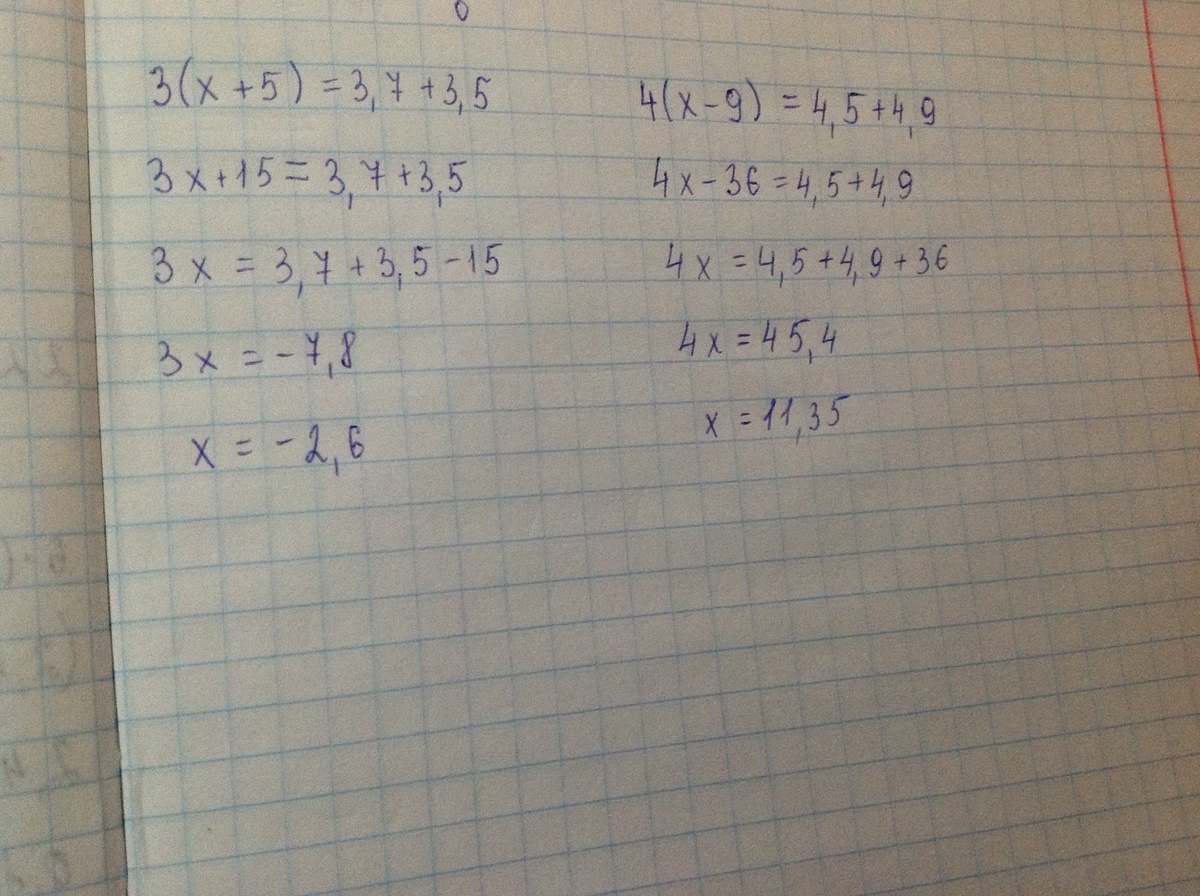 3(x+5) = 3,7+3,5
3x+15 = 3,7+3,5
3x = 3,7+3,5-15
3x = -7,8
x = -2,6
4(x-9) = 4,5+4,9
4x-36 = 4,5+4,9
4x = 4,5+4,9+36
4x = 45,4
x = 11,35